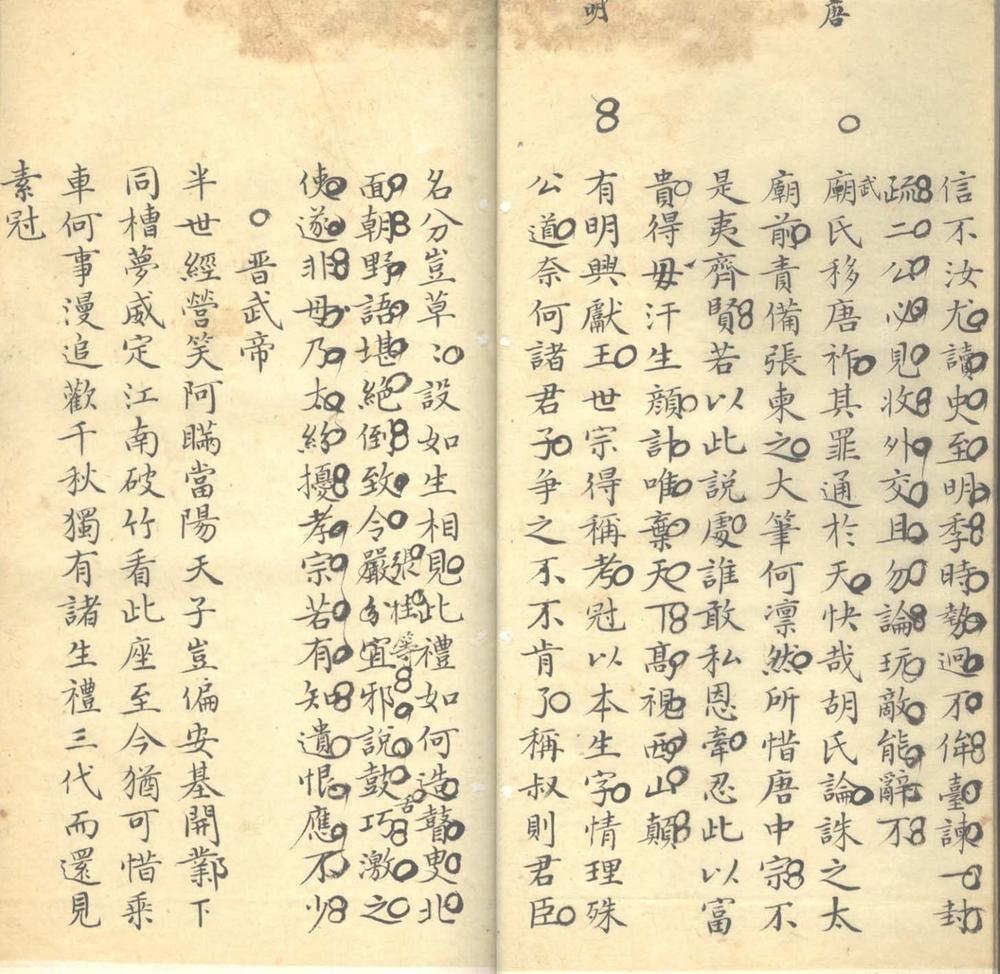 唐
明
信不汝尤讀史至明季時勢迥不侔臺諫一封
疏二公必見收外交且勿論玩敵能辭不
武
廟氏移唐祚其罪通於天快哉胡氏論誅之太
廟前責備張柬之大筆何凛然所惜唐中宗不
是夷齊賢若以此說處誰敢私恩牽忍此以富
貴得毋汗生顏計唯棄天下髙視西山顛
有明興獻王世宗得稱考冠以本生字情理殊
公道奈何諸君子争之不不肯了稱叔則君臣
名分豈草〻設如生相見此禮如何造瞽叟北
面朝野語堪絕倒致令嚴分宜邪說鼓巧激之
張桂等
舌
使遂非毋乃太紛擾孝宗若有知遺恨應不少
晋武帝
半世經營笑阿瞞當陽天子豈偏安基開鄴下
同槽夢威定江南破竹看此座至今猶可惜乘
車何事漫追歡千秋獨有諸生禮三代而還見
素冠